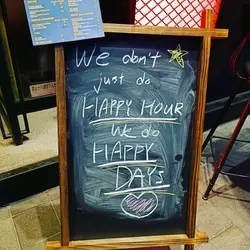 We don't
just do
HAPPY HOUR
We do
HAPPY
DAYS